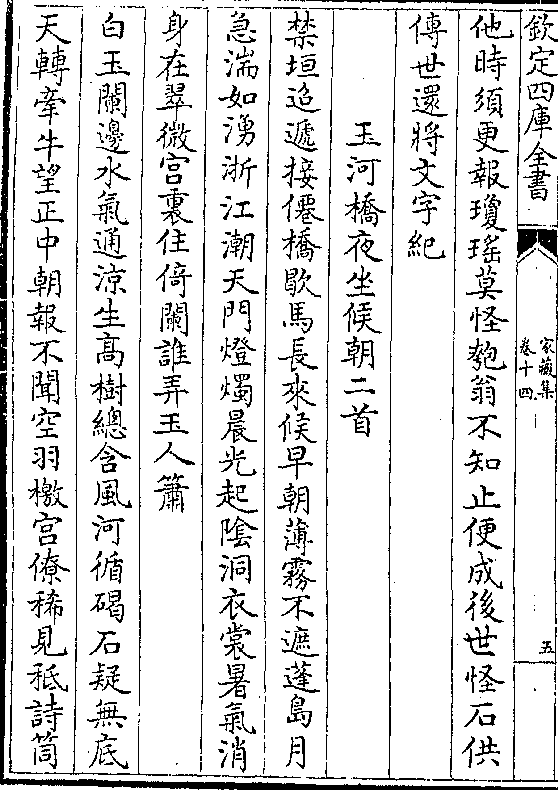 欽定四庫全書
家藏集
卷十四
五
他時須更報瓊瑤莫怪匏翁不知止便成後世怪石供
傳世還將文字紀
玉河橋夜坐候朝二首
禁垣迢遞接僊橋歇馬長來候早朝薄霧不遮蓬島月
急湍如湧浙江潮天門燈燭晨光起陰洞衣裳暑氣消
身在翠微宫裏住倚闌誰弄玉人簫
白玉闌邊水氣通涼生高樹總含風河循碣石疑無底
天轉牽牛望正中朝報不聞空羽檄宫僚稀見秪詩筒